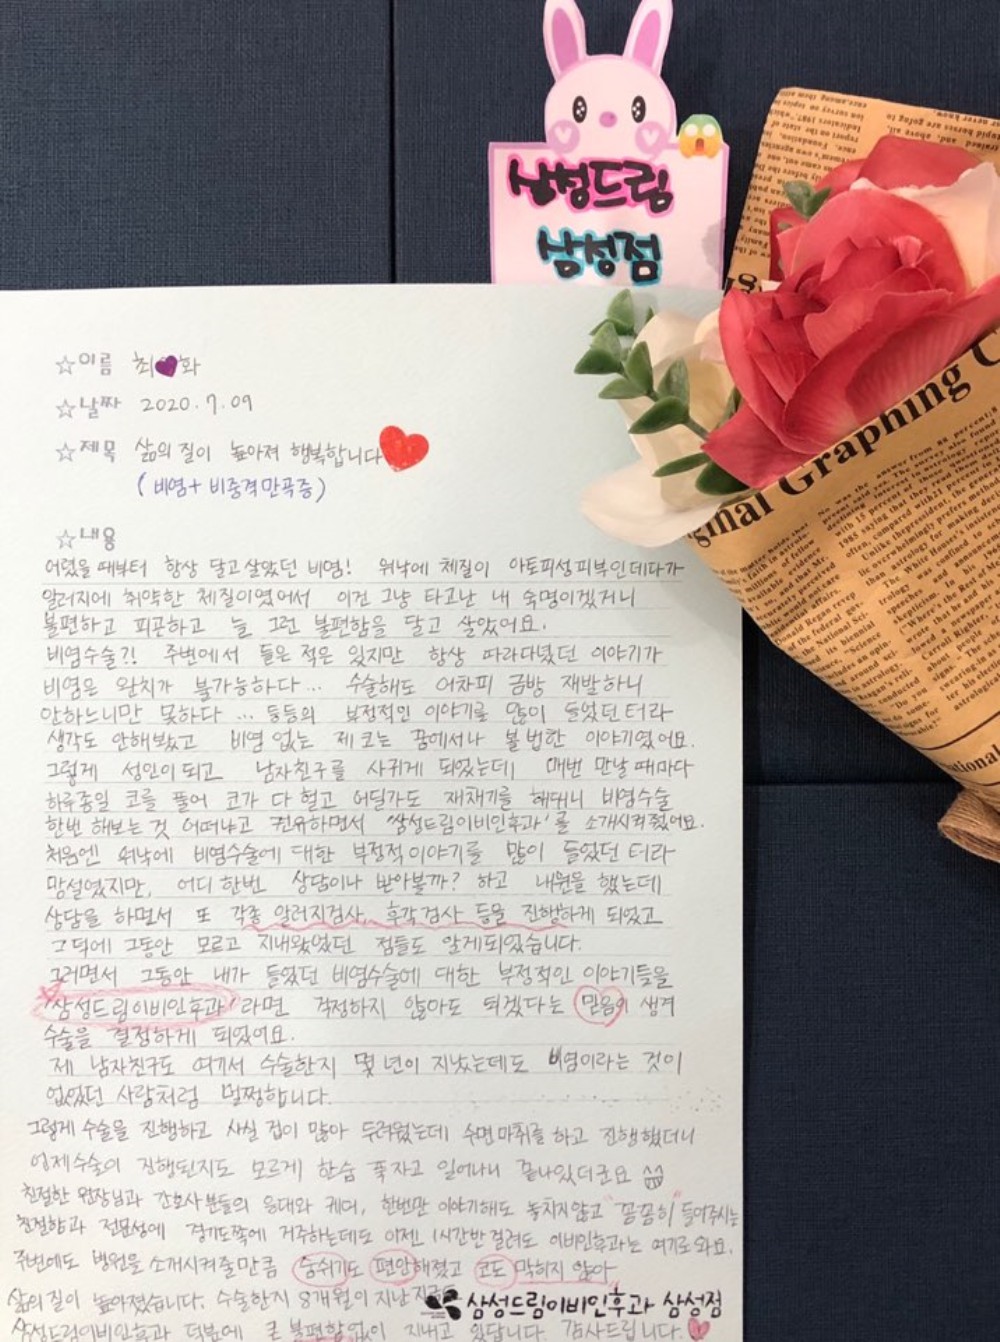 삼성드림
삼성점
☆이름 최♥화
☆날짜 2020.7.09
☆제목 삶의 질이 높아져 행복합니다
(비염+비중격만곡증)
☆내용
어렸을때부터 항상 달고살았던 비염! 워낙에 체질이 아토피성피부인데다가
알러지에 취약한 체질이였어서 이건 그냥 타고난 내 숙명이겠거니
불편하고 피곤하고 늘 그런 불편함을 달고 살았어요.
비염수술?! 주변에서 들은적은 있지만 항상 따라다녔던 이야기가
비염은 완치가 불가능하다... 수술해도 어차피 금방 재발하니
안하느니만 못하다... 등등의 부정적인 이야기를 많이 들었던터라
생각도 안해봤고 비염 없는 제 코는 꿈에서나 볼 법한 이야기였어요.
그렇게 성인이되고 남자친구를 사귀게 되었는데 매번 만날때마다
하루종일 코를 풀어 코가 다 헐고 어딜가도 재채기를 해대니 비염수술
한번 해보는것 어떠냐고 권유하면서 '삼성드림이비인후과'를 소개시켜줬어요.
처음엔 워낙에 비염수술에 대한 부정적이야기를 많이 들었던터라
망설였지만, 어디한번 상담이나 받아볼까? 하고 내원을 했는데
상담을 하면서 또 각종 알러지검사, 후각검사 등을 진행하게 되었고
그덕에 그동안 모르고 지내왔었던 점들도 알게되었습니다.
그러면서 그동안 내가 들었던 비염수술에 대한 부정적인 이야기들을
'삼성드림이비인후과'라면 걱정하지 않아도 되겠다는 믿음이 생겨
수술을 결정하게 되었어요.
제 남자친구도 여기서 수술한지 몇년이 지났는데도 비염이라는 것이
없었던 사람처럼 멀쩡합니다.
그렇게 수술을 진행하고 사실 겁이 많아 두려웠는데 수면마취를 하고 진행했더니
언제수술이 진행된지도 모르게 한숨 푹자고 일어나니 끝나있더군요
친절한 원장님과 간호사분들의 응대와 케어, 한번만 이야기해도 놓치지않고 "꼼꼼히" 들어주시는
친절함과 전문성에 경기도쪽에 거주하는데도 이젠 1시간반 걸려도 이비인후과는 여기로와요.
주변에도 병원을 소개시켜줄만큼 숨쉬기도 편안해졌고 코도 막히지 않아
삶의질이 높아졌습니다. 수술한지 8개월이 지난
삼성드림이비인후과 덕분에 큰 불편함없이 지내고 있답니다. 감사드립니다.♥
삼성드림이비인후과 삼성점